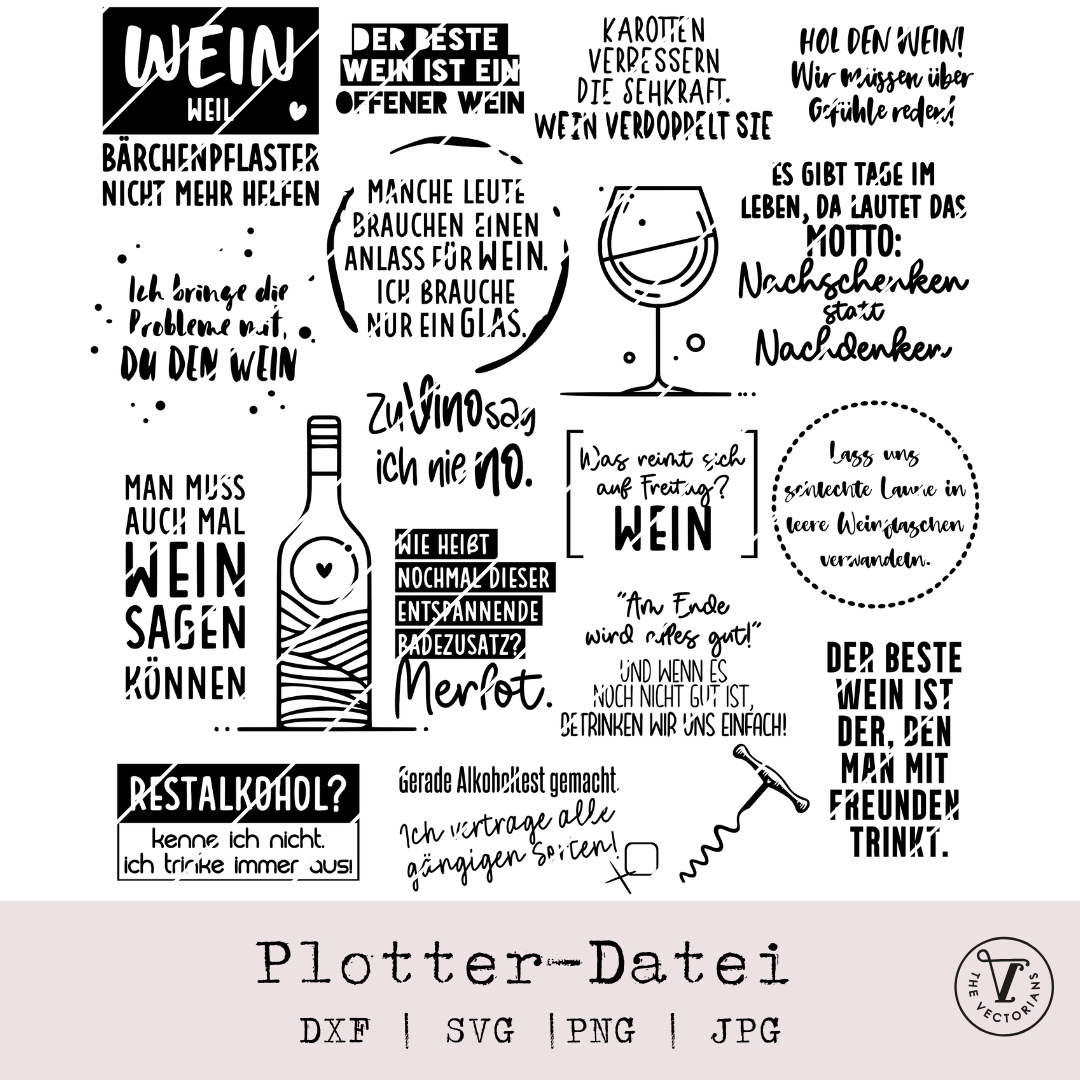 WEIN
WEIL
BÄRCHENPFLASTER
NICHT MEHR HELFEN
DER BESTE
WEIN IST EIN
OFFENER WEIN
KAROTTEN
VERBESSERN
DIE SEHKRAFT.
WEIN VERDOPPELT SIE
HOL DEN WEIN!
Wir müssen über
Gefühle reden!
MANCHE LEUTE
BRAUCHEN EINEN
ANLASS FÜR WEIN.
ICH BRAUCHE
NUR EIN GLAS.
ES GIBT TAGE IM
LEBEN, DA LAUTET DAS
MOTTO:
Nachschenken
statt
Nachdenken
Ich bringe die
Probleme mit,
DU DEN WEIN
Zu Vino sag
ich nie no.
Was reimt sich
auf Freitag?
WEIN
Lass uns
schlechte Laune in
leere Weinflaschen
verwandeln.
MAN MUSS
AUCH MAL
WEIN
SAGEN
KÖNNEN
WIE HEIßT
NOCHMAL DIESER
ENTSPANNENDE
BADEZUSATZ?
Merlot.
"Am Ende
wird alles gut!"
UND WENN ES
NOCH NICHT GUT IST,
BETRINKEN WIR UNS EINFACH!
DER BESTE
WEIN IST
DER, DEN
MAN MIT
FREUNDEN
TRINKT.
RESTALKOHOL?
kenne ich nicht.
ich trinke immer aus!
Gerade Alkoholtest gemacht.
Ich vertrage alle
gängigen Sorten!
Plotter-Datei
DXF | SVG | PNG | JPG
THE VECTORIANS